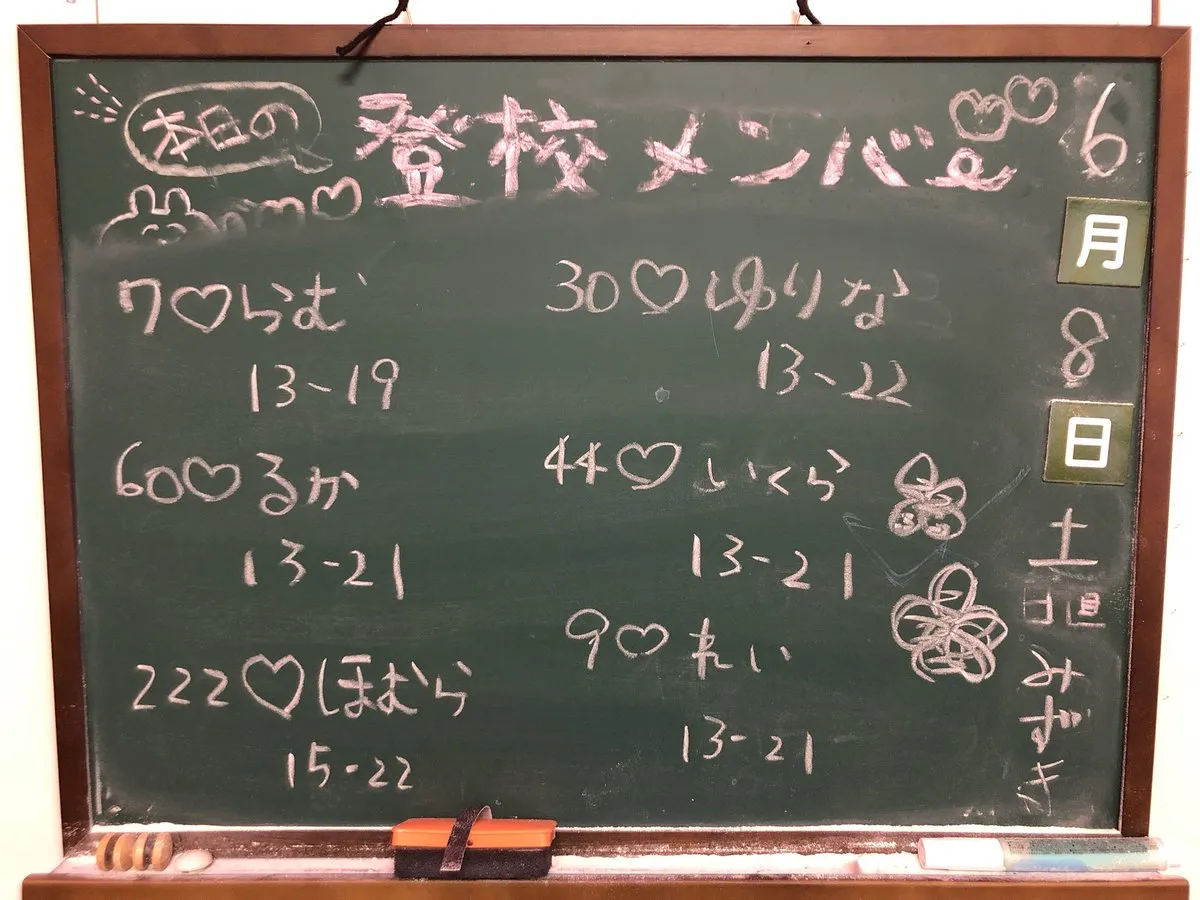 本日の
登校メンバー
7♡らむ
13~19
30♡ゆりな
13~22
60♡るか
13-21
44♡いくら
13-21
222♡ほむら
15-22
9♡れい
13-21
6
月
8
日
土
日直
みずき